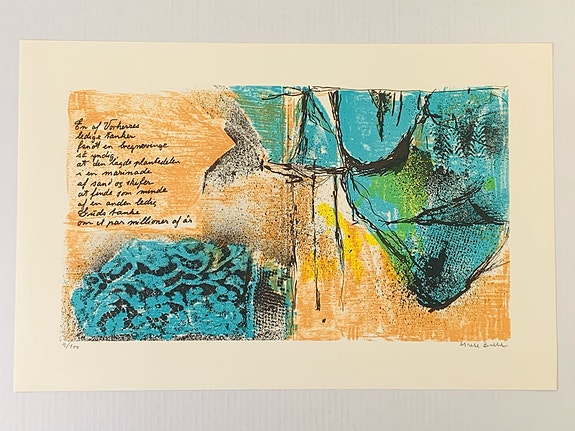 En af Vorherres
ledige tanker
fandt en bregnevinge
så yndig
at den lagde plantedelen
i en marinade
af sand og skifer
at finde som minde
af en anden ledig
Guds tanke
om et par millioner af år
/100
Bille